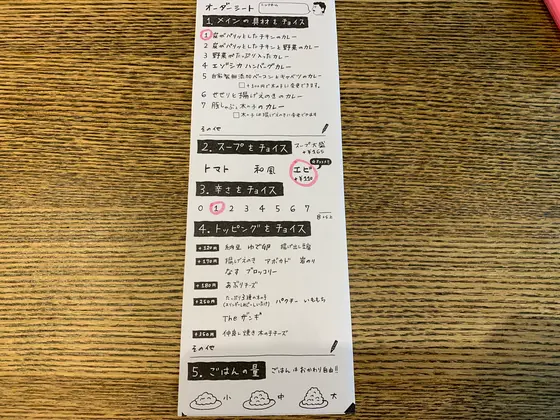 オーダーシート
1. メインの具材をチョイス
1 皮がパリッとしたチキンのカレー
2 皮がパリッとしたチキンと野菜のカレー
3 野菜がたっぷり入ったカレー
4 エゾシカハンバーグカレー
5 自家製無添加ベーコンとキャベツのカレー
6 せせりと揚げえのきのカレー
7 豚しゃぶと木の子のカレー
その他
2. スープをチョイス スープ大盛
トマト 和風 エビ
+¥110
3. 辛さをチョイス
0 1 2 3 4 5 6 7
4. トッピングをチョイス
+120円 納豆 ゆで卵
+170円 揚げえのき アボカド 岩のり
なす ブロッコリー
+180円 あぶりチーズ
+250円 パクチー いももち
The ザンギ
+350円
その他
5. ごはんの量 ごはんはおかわり自由!!
小 中 大